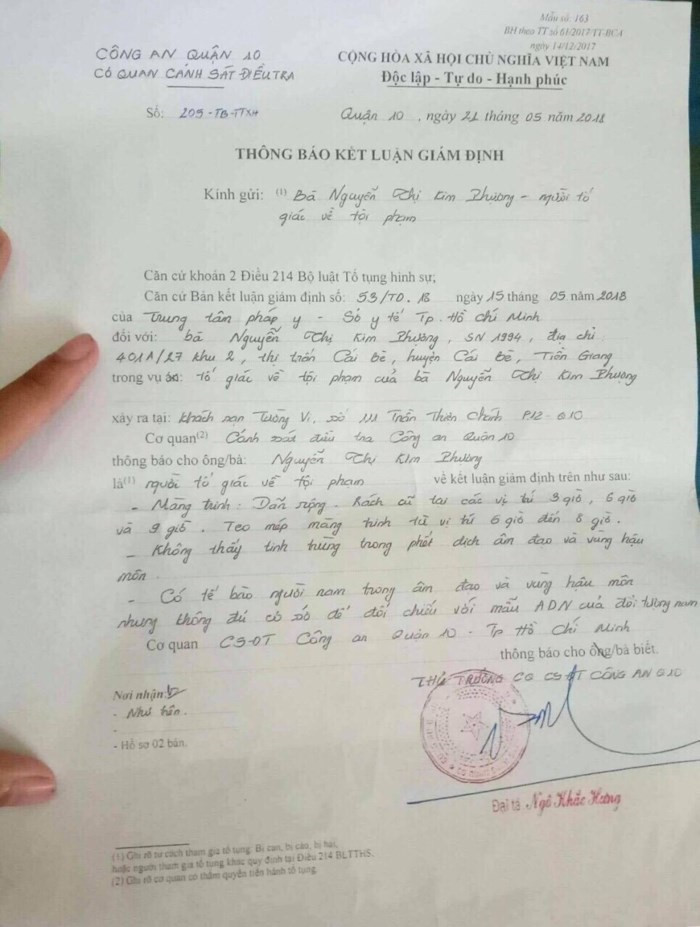 Mẫu số: 163
BH theo TT số 61/2017/TT-BCA
ngày 14/12/2017
CÔNG AN QUẬN 10
CƠ QUAN CẢNH SÁT ĐIỀU TRA
CỘNG HÒA XÃ HỘI CHỦ NGHĨA VIỆT NAM
Độc lập - Tự do - Hạnh phúc
Số: 205-TB-TTXH
Quận 10, ngày 21 tháng 05 năm 2018
THÔNG BÁO KẾT LUẬN GIÁM ĐỊNH
Kính gửi: (1) Bà Nguyễn Thị Kim Phượng - người tố
giác về tội phạm
Căn cứ khoản 2 Điều 214 Bộ luật Tố tụng hình sự;
Căn cứ Bản kết luận giám định số: 53/TD.B ngày 15 tháng 05 năm 2018
của Trung tâm pháp y - Sở y tế Tp. Hồ Chí Minh
đối với: bà Nguyễn Thị Kim Phượng, SN 1994, địa chỉ
401A/27 khu 2, thị trấn Cái Bè, huyện Cái Bè, Tiền Giang
trong vụ án: tố giác về tội phạm của bà Nguyễn Thị Kim Phượng
xảy ra tại: khách sạn Tường Vi, số 111 Trần Thiện Chánh P12-Q10
Cơ quan(2) Cảnh sát điều tra Công an Quận 10
thông báo cho ông/bà: Nguyễn Thị Kim Phượng
là(1) người tố giác về tội phạm về kết luận giám định trên như sau:
- Màng trinh: Dãn rộng. Rách cũ tại các vị trí 3 giờ, 6 giờ
và 9 giờ. Teo mép màng trinh từ vị trí 6 giờ đến 8 giờ.
- Không thấy tinh trùng trong phết dịch âm đạo và vùng hậu
môn.
- Có tế bào người nam trong âm đạo và vùng hậu môn
nhưng không đủ cơ sở để đối chiếu với mẫu ADN của đối tượng nam
Cơ quan CS-ĐT Công an Quận 10 - Tp Hồ Chí Minh
thông báo cho ông/bà biết.
THỦ TRƯỞNG CQ CSĐT CÔNG AN Q10
Nơi nhận:
- Như trên.
-
- Hồ sơ 02 bản.
Đại tá Ngô Khắc Hưng
(1) Ghi rõ tư cách tham gia tố tụng: Bị can, bị cáo, bị hại,
hoặc người tham gia tố tụng khác quy định tại Điều 214 BLTTHS.
(2) Ghi rõ cơ quan có thẩm quyền tiến hành tố tụng.